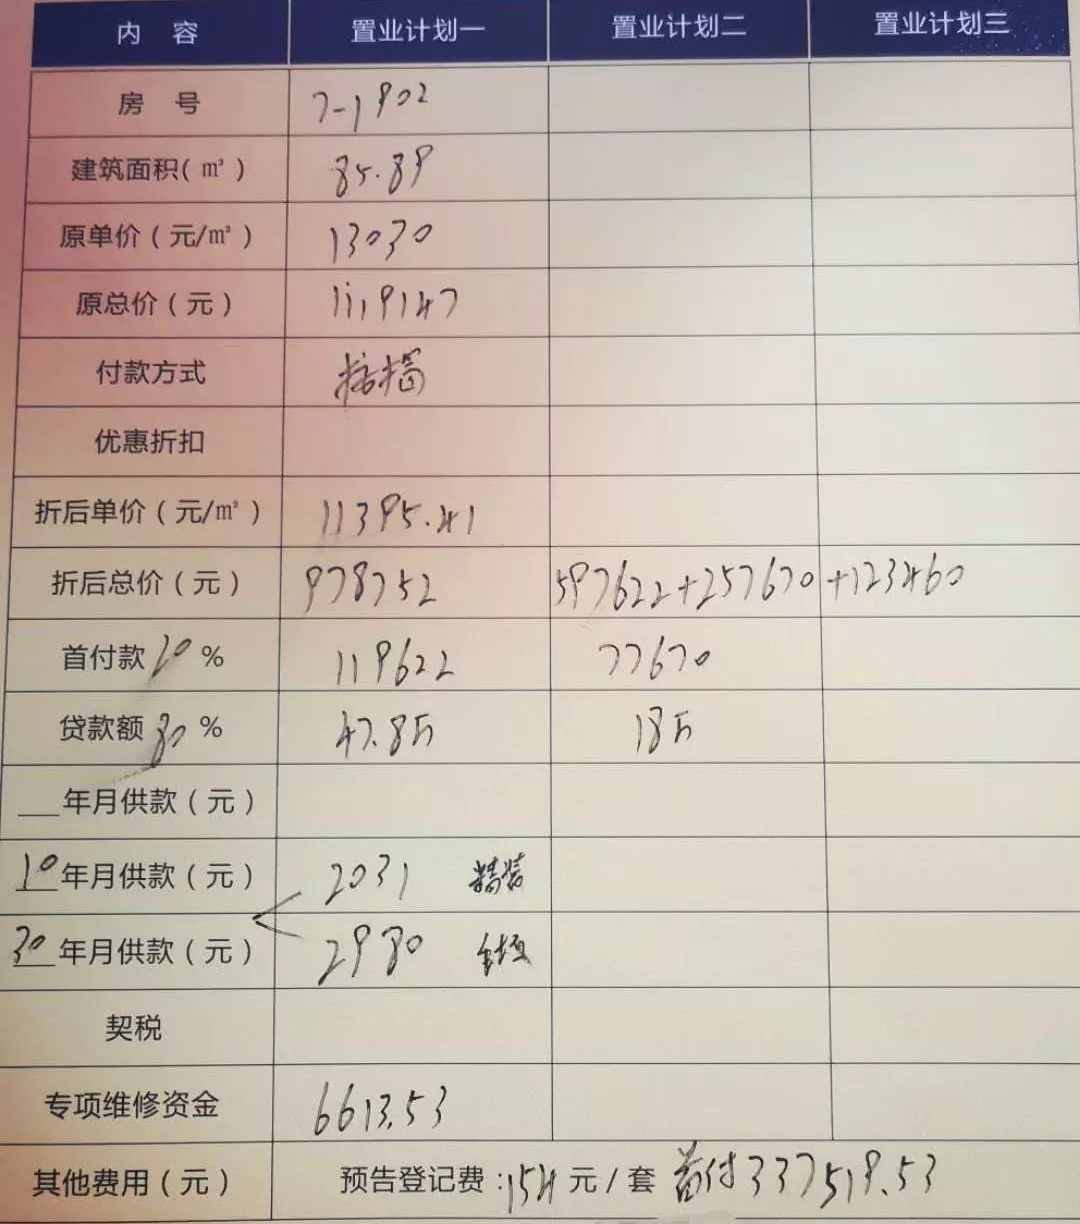 内 容 置业计划一 置业计划二 置业计划三
房 号 7-1902
建筑面积(㎡) 85.89
原单价（元/㎡） 13030
原总价（元） 1119147
付款方式 按揭
优惠折扣
折后单价（元/㎡） 11395.41
折后总价（元） 978752 597622+257670+123460
首付款20% 119622 77670
贷款额80% 47.8万 18万
___年月供款（元）
10年月供款（元） 2031 精装
30年月供款（元） 2980
契税
专项维修资金 6613.53
其他费用（元） 预告登记费:154元/套 首付337519.53